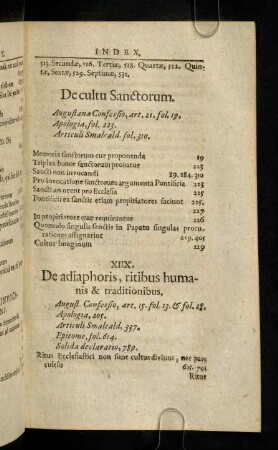 INDEX.
513. Secundæ, 516. Tertiæ, 518. Quartæ, 522. Quin-
tæ, Sextæ, 529. Septimæ, 531.
De cultu Sanctorum.
Augustana Confessio, art. 21. fol. 19.
Apologia, fol. 223.
Articuli Smalcald. fol. 310.
Memoria sanctorum cur proponenda 19
Triplex honor sanctorum probatur 223
Sancti non invocandi 19. 284. 310
Pro invocatione sanctorum argumenta Pontificia 223
Sancti an orent pro Ecclesia 225
Pontificii ex sanctis etiam propitiatores faciunt 225.
227
In propitiatore quæ requirantur 226
Quomodo singulis sanctis in Papatu singulas procu-
rationes assignarint 229. 405
Cultus Imaginum 229
XIIX.
De adiaphoris, ritibus huma-
nis & traditionibus.
August. Confessio, art. 15. fol. 13. & fol. 28.
Apologia, 205.
Articuli Smalcald. 337.
Epitome, fol. 614.
Solida declaratio, 789.
Ritus Ecclesiastici non sunt cultus divinus, nec pars
cultus 615. 791
Ritus